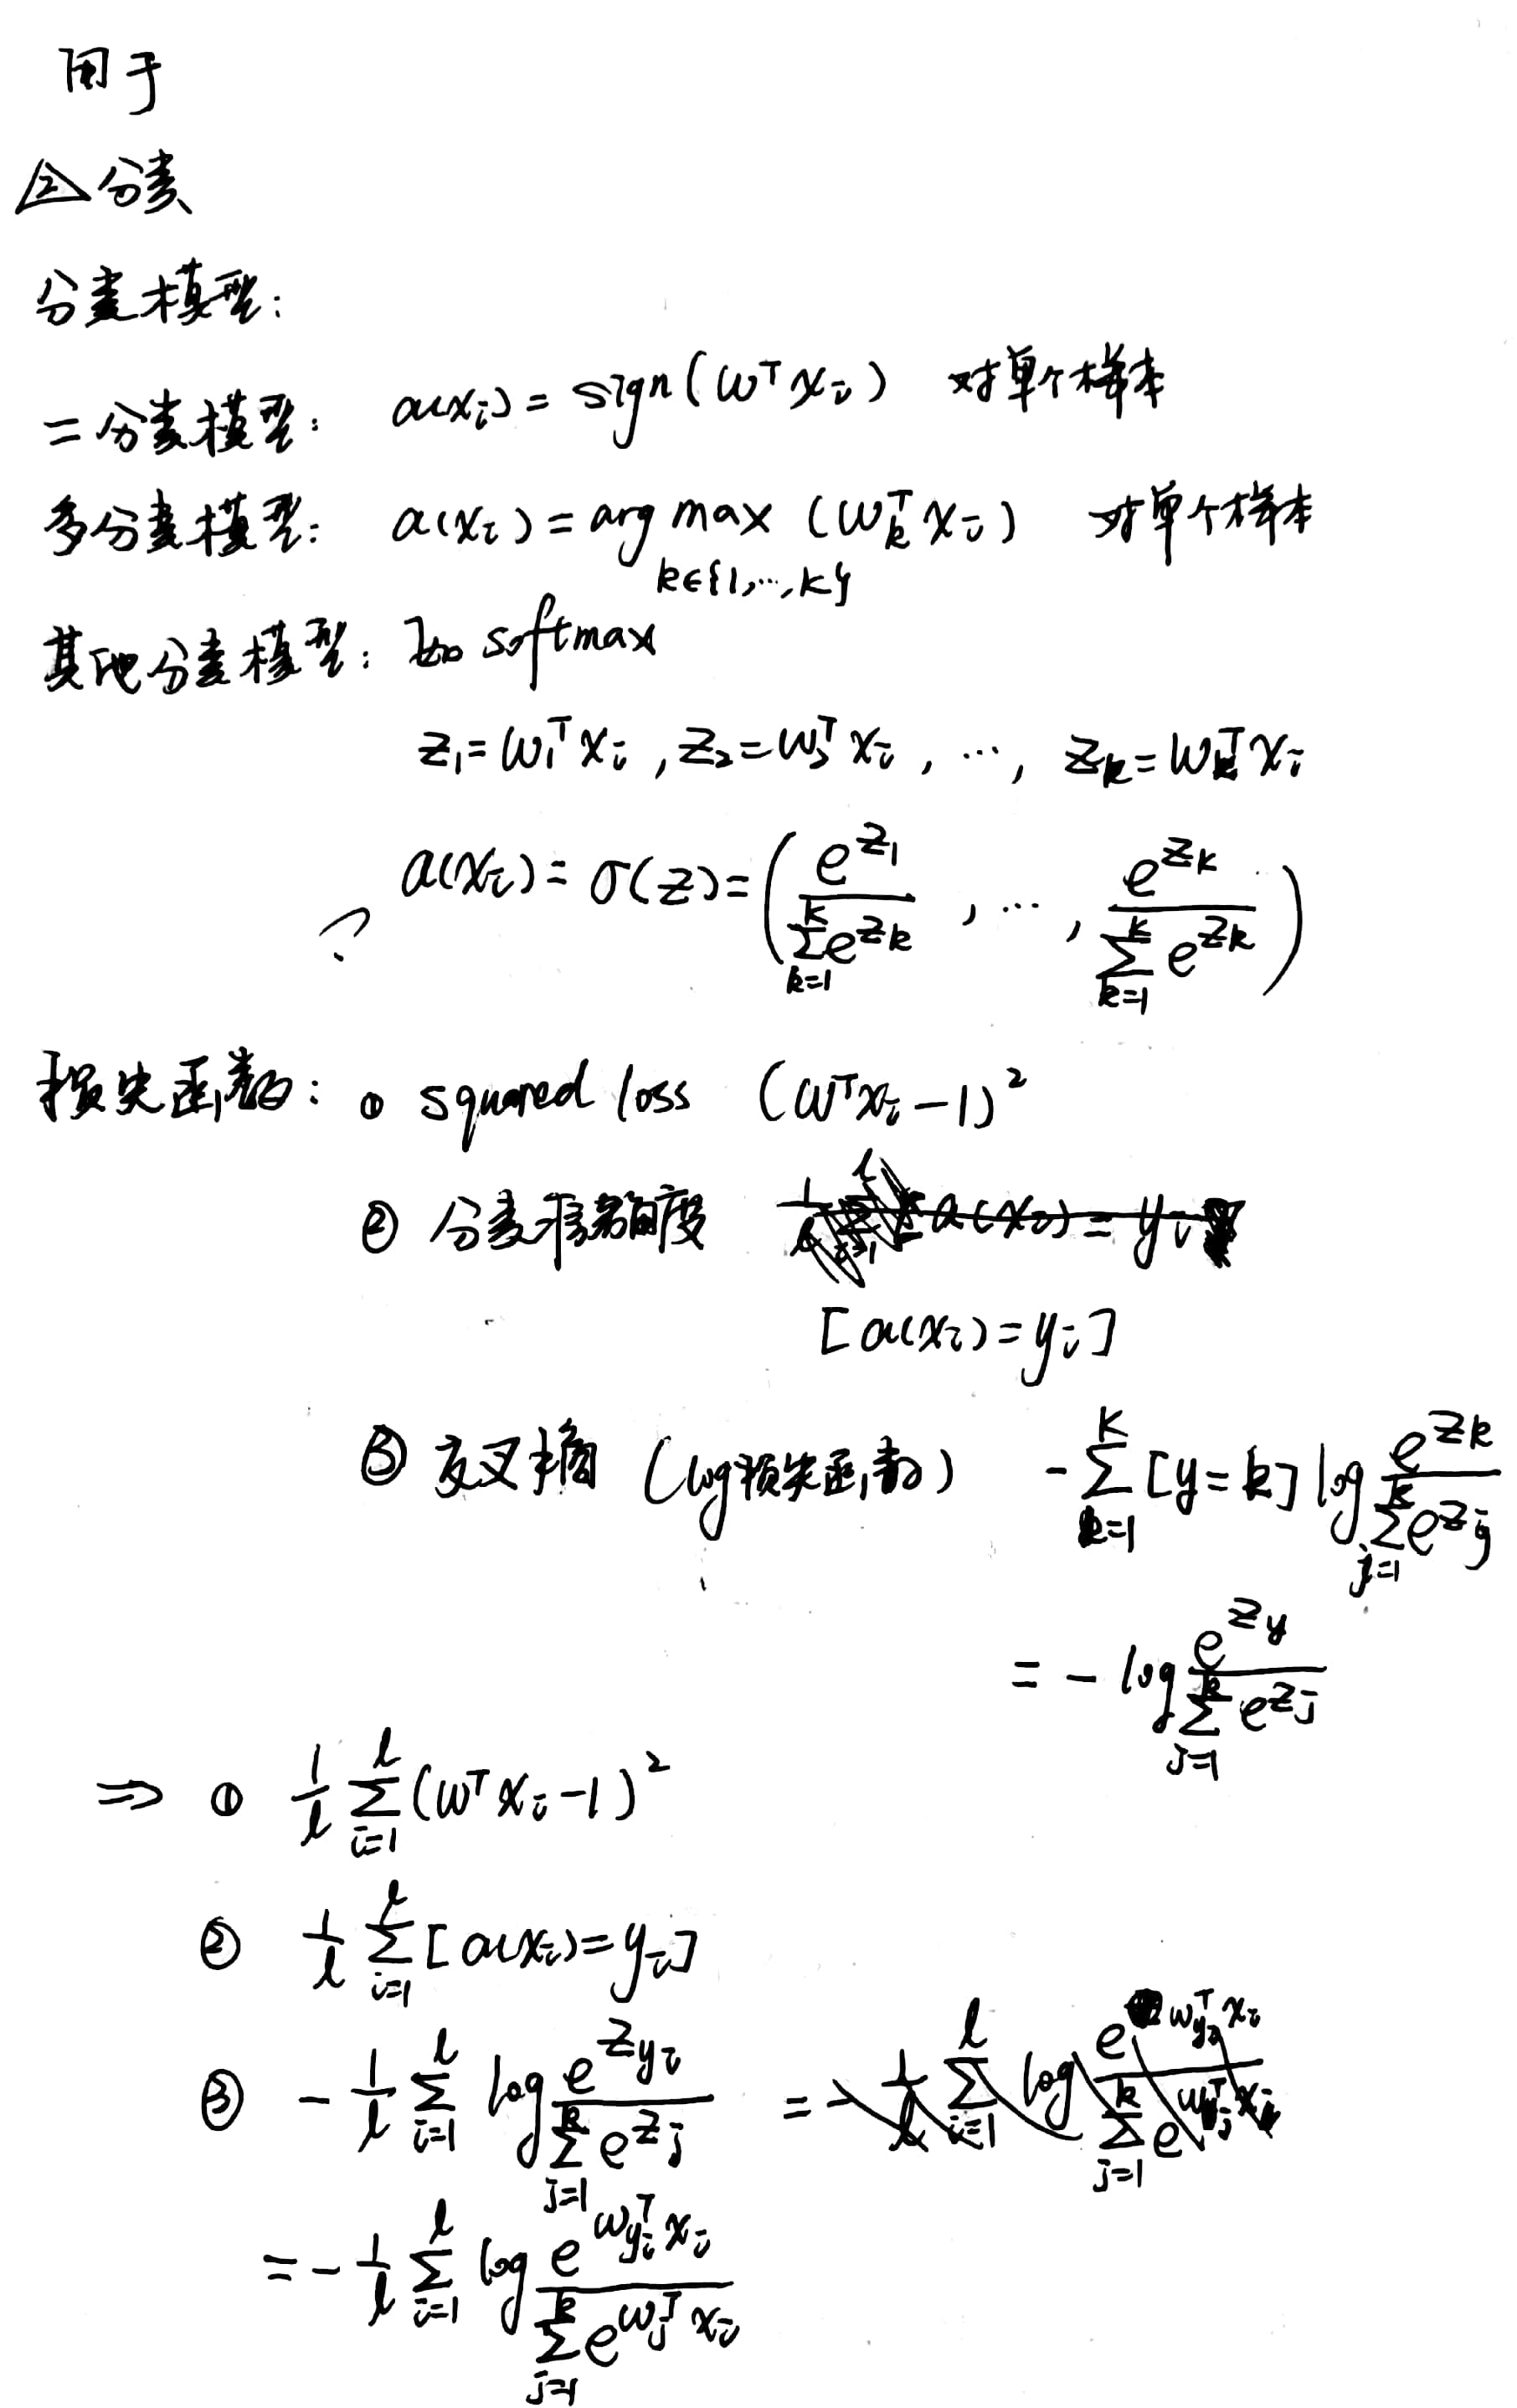 用于
② 分类
分类模型:
二分类模型: a(x_i) = sign(w^T x_i) 对单个样本
多分类模型: a(x_i) = arg max_{k∈{1,…,K}} (w_k^T x_i) 对单个样本
其他分类模型: 如 softmax
z_1 = w_1^T x_i , z_2 = w_2^T x_i , …, z_k = w_k^T x_i
? a(x_i) = σ(z) = ( e^{z_1} / ∑_{k=1}^{K} e^{z_k} , … , e^{z_k} / ∑_{k=1}^{K} e^{z_k} )
损失函数: ① squared loss (w^T x_i − 1)^2
② 分类准确度
[a(x_i) = y_i]
③ 交叉熵 (log损失函数) − ∑_{k=1}^{K} [y = k] log e^{z_k} / ∑_{j=1}^{K} e^{z_j}
= − log e^{z_y} / ∑_{j=1}^{k} e^{z_j}
⇒ ① 1/l ∑_{i=1}^{l} (w^T x_i − 1)^2
② 1/l ∑_{i=1}^{l} [a(x_i) = y_i]
③ − 1/l ∑_{i=1}^{l} log e^{z_{y_i}} / ∑_{j=1}^{k} e^{z_j}
= − 1/l ∑_{i=1}^{l} log e^{w_{y_i}^T x_i} / ∑_{j=1}^{k} e^{w_j^T x_i}